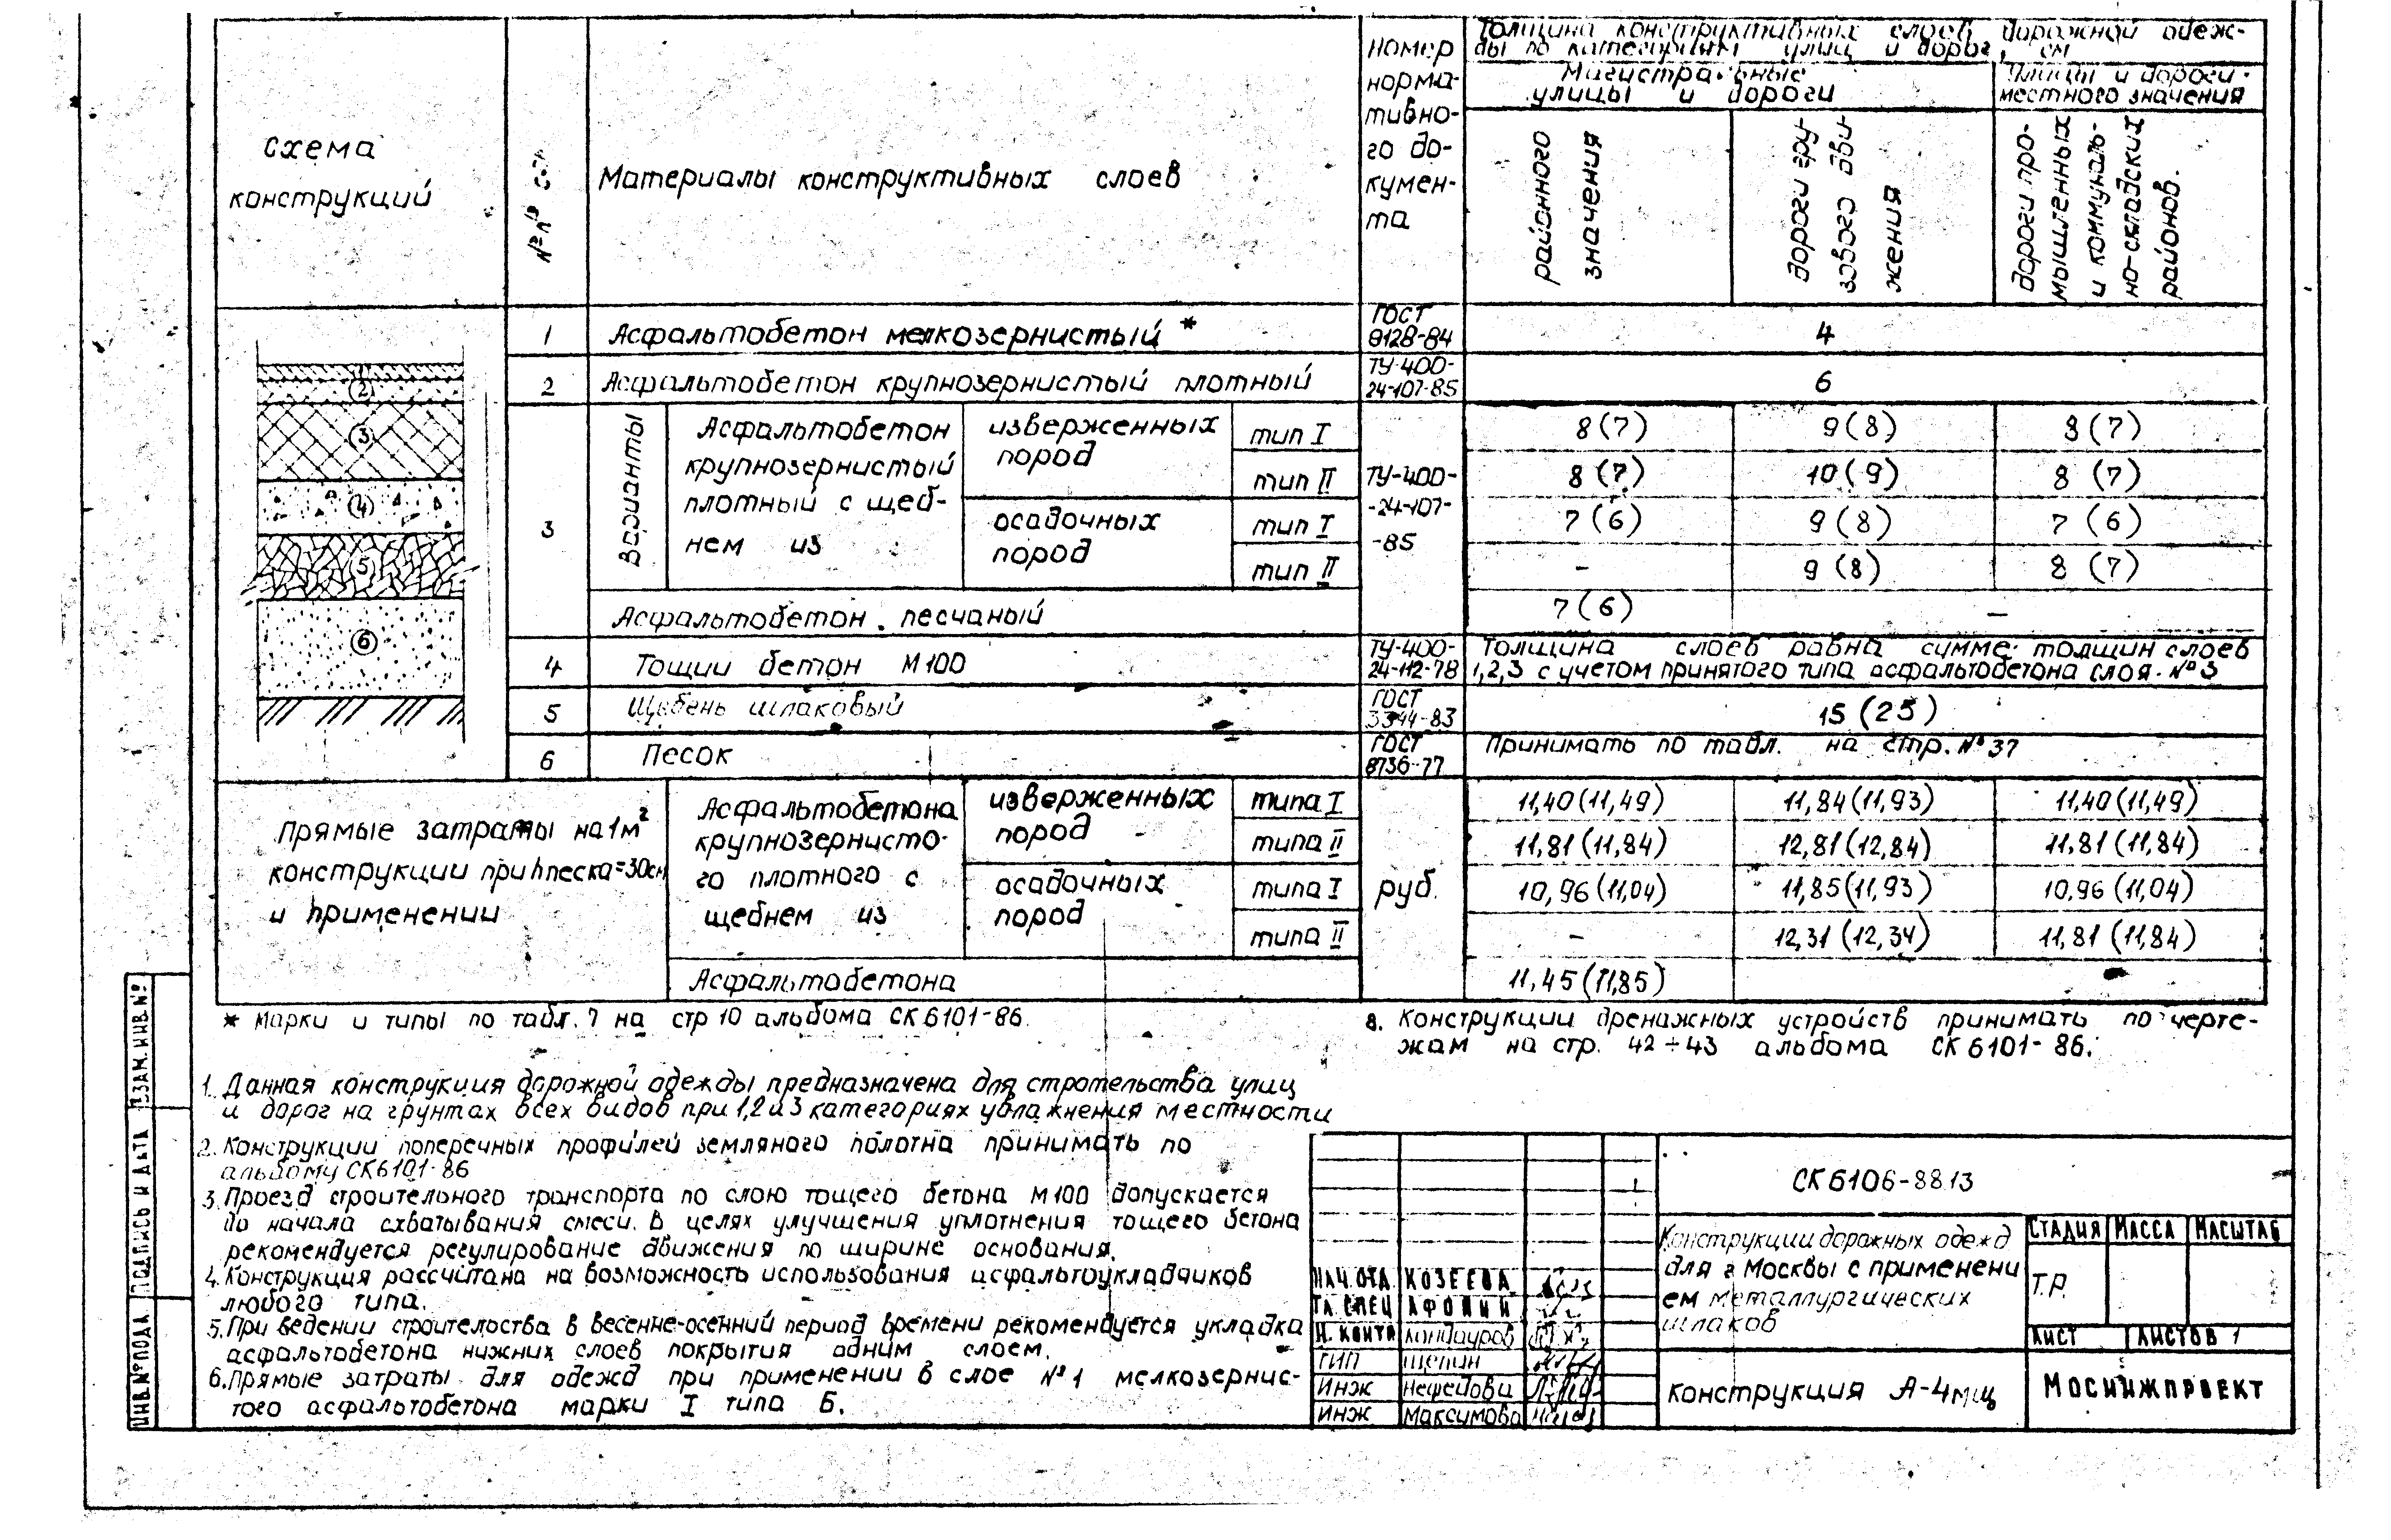 схема
конструкций
№№ сл.
Материалы конструктивных слоев
номер
норма-
тивно-
го до-
кумен-
та
Толщина конструктивных слоев дорожной одеж-
ды по категориям улиц и дорог, см
Магистральные
улицы и дороги
Улицы и дороги
местного значения
районного
значения
дороги гру-
зового дви-
жения
дороги про-
мышленных
и коммуналь-
но-складских
районов.
1 Асфальтобетон мелкозернистый * ГОСТ 9128-84 4
2 Асфальтобетон крупнозернистый плотный ТУ-400-24-107-85 6
② ③ ④ ⑤ ⑥
3
Варианты
Асфальтобетон
крупнозернистый
плотный с щеб-
нем из
изверженных
пород
осадочных
пород
ТУ-400-
-24-107-
-85
тип I 8(7) 9(8) 8(7)
тип II 8(7) 10(9) 8 (7)
тип I 7(6) 9(8) 7 (6)
тип II - 9(8) 8 (7)
Асфальтобетон песчаный 7(6) -
4 Тощии бетон М100 ТУ-400-24-112-78
Толщина слоев равна сумме толщин слоев
1,2,3 с учетом принятого типа асфальтобетона слоя №3
5 Щебень шлаковый ГОСТ 3344-83 15(25)
6 Песок ГОСТ 8736-77 Принимать по табл. на стр. №37
Прямые затраты на 1м²
конструкции при hпеска=30см
и применении
Асфальтобетона
крупнозернисто-
го плотного с
щебнем из
изверженных
пород
осадочных
пород
руб.
типа I 11,40(11,49) 11,84(11,93) 11,40(11,49)
типа II 11,81(11,84) 12,81(12,84) 11,81(11,84)
типа I 10,96(11,04) 11,85(11,93) 10,96(11,04)
типа II - 12,31(12,34) 11,81(11,84)
Асфальтобетона 11,45(11,85) -
* Марки и типы по табл. 7 на стр 10 альбома СК 6101-86.
8. Конструкции дренажных устройств принимать по черте-
жам на стр. 42÷43 альбома СК 6101-86.
1. Данная конструкция дорожной одежды предназначена для стротельства улиц
и дорог на грунтах всех видов при 1,2 и 3 категориях увлажнения местности
2. Конструкции поперечных профилей земляного полотна принимать по
альбому СК6101-86
3. Проезд строительного транспорта по слою тощего бетона М100 допускается
до начала схватывания смеси. В целях улучшения уплотнения тощего бетона
рекомендуется регулирование движения по ширине основания.
4. Конструкция рассчитана на возможность использования асфальтоукладчиков
любого типа.
5. При ведении строительства в весенне-осенний период времени рекомендуется укладка
асфальтобетона нижних слоев покрытия одним слоем.
6. Прямые затраты для одежд при применении в слое №1 мелкозернис-
того асфальтобетона марки I типа Б.
ВЗАМ. ИНВ.№
ПОДПИСЬ И ДАТА
ИНВ.№ПОДА
НАЧ.ОТД. КОЗЕЕВА
ГЛ СПЕЦ АФОНИН
Н. КОНТР Кондауров
ГИП Щепин
ИНЖ Нефедова
ИНЖ Максимова
СК 6106-88 13
Конструкции дорожных одежд
для г Москвы с применени
ем металлургических
шлаков
СТАДИЯ МАССА МАСШТАБ
Т.Р.
ЛИСТ ЛИСТОВ 1
конструкция А-4мщ
МОСИНЖПРОЕКТ